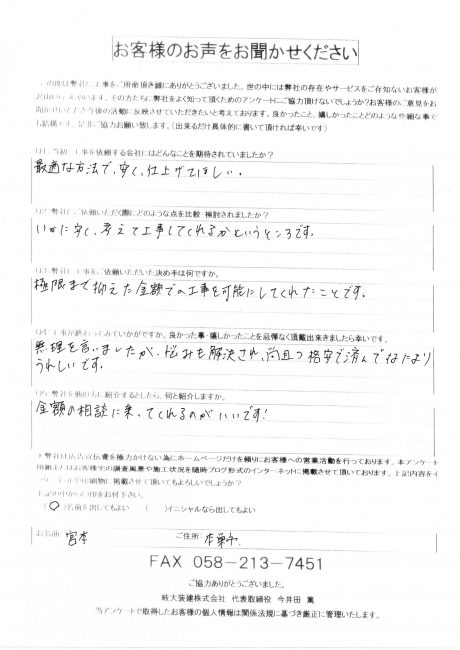 お客様のお声をお聞かせください
この度は弊社に工事をご用命頂き誠にありがとうございました。世の中には弊社の存在やサービスをご存知ないお客様が
その方たちに弊社をよく知って頂くためのアンケートにご協力頂けないでしょうか?お客様のご意見をお
聞かせいただき今後の活動に反映させていきたいと考えております。良かったこと、嬉しかったことどのような些細な事で
も結構です。是非ご協力お願い致します。(出来るだけ具体的に書いて頂ければ幸いです)
Q1.当初、工事を依頼する会社にはどんなことを期待されていましたか?
最適な方法で、安く、仕上げてほしい。
Q2.弊社にご依頼いただく際にどのような点を比較・検討されましたか?
いかに安く、考えて工事してくれるかというところです。
Q3.弊社に工事をご依頼いただいた決め手は何ですか。
極限まで抑えた金額での工事を可能にしてくれたことです。
Q4.工事が終わってみていかがですか。良かった事・嬉しかったことを忌憚なく頂戴出来きましたら幸いです。
無理を言いましたが、悩みも解決され、尚且つ格安で済んでなにより
うれしいです。
Q5.弊社を他の方に紹介するとしたら、何と紹介しますか。
金額の相談に乗ってくれるのがいいです!
※弊社は広告宣伝費を極力かけない為にホームページだけを頼りにお客様への営業活動を行っております。本アンケート
用紙またはお客様宅の調査風景や施工状況を随時ブログ形式のインターネットに掲載させて頂いております。上記内容をイ
ンターネットや印刷物に掲載させて頂いてもよろしいでしょうか?
下記の中から○印をお付下さい。
(○)名前を出してもよい ( )イニシャルなら出してもよい
お名前 宮本 ご住所: 本巣市
FAX 058-213-7451
ご協力ありがとうございました。
岐大装建株式会社 代表取締役 今井田 篤
当アンケートで取得したお客様の個人情報は関係法規に基づき厳正に管理いたします。